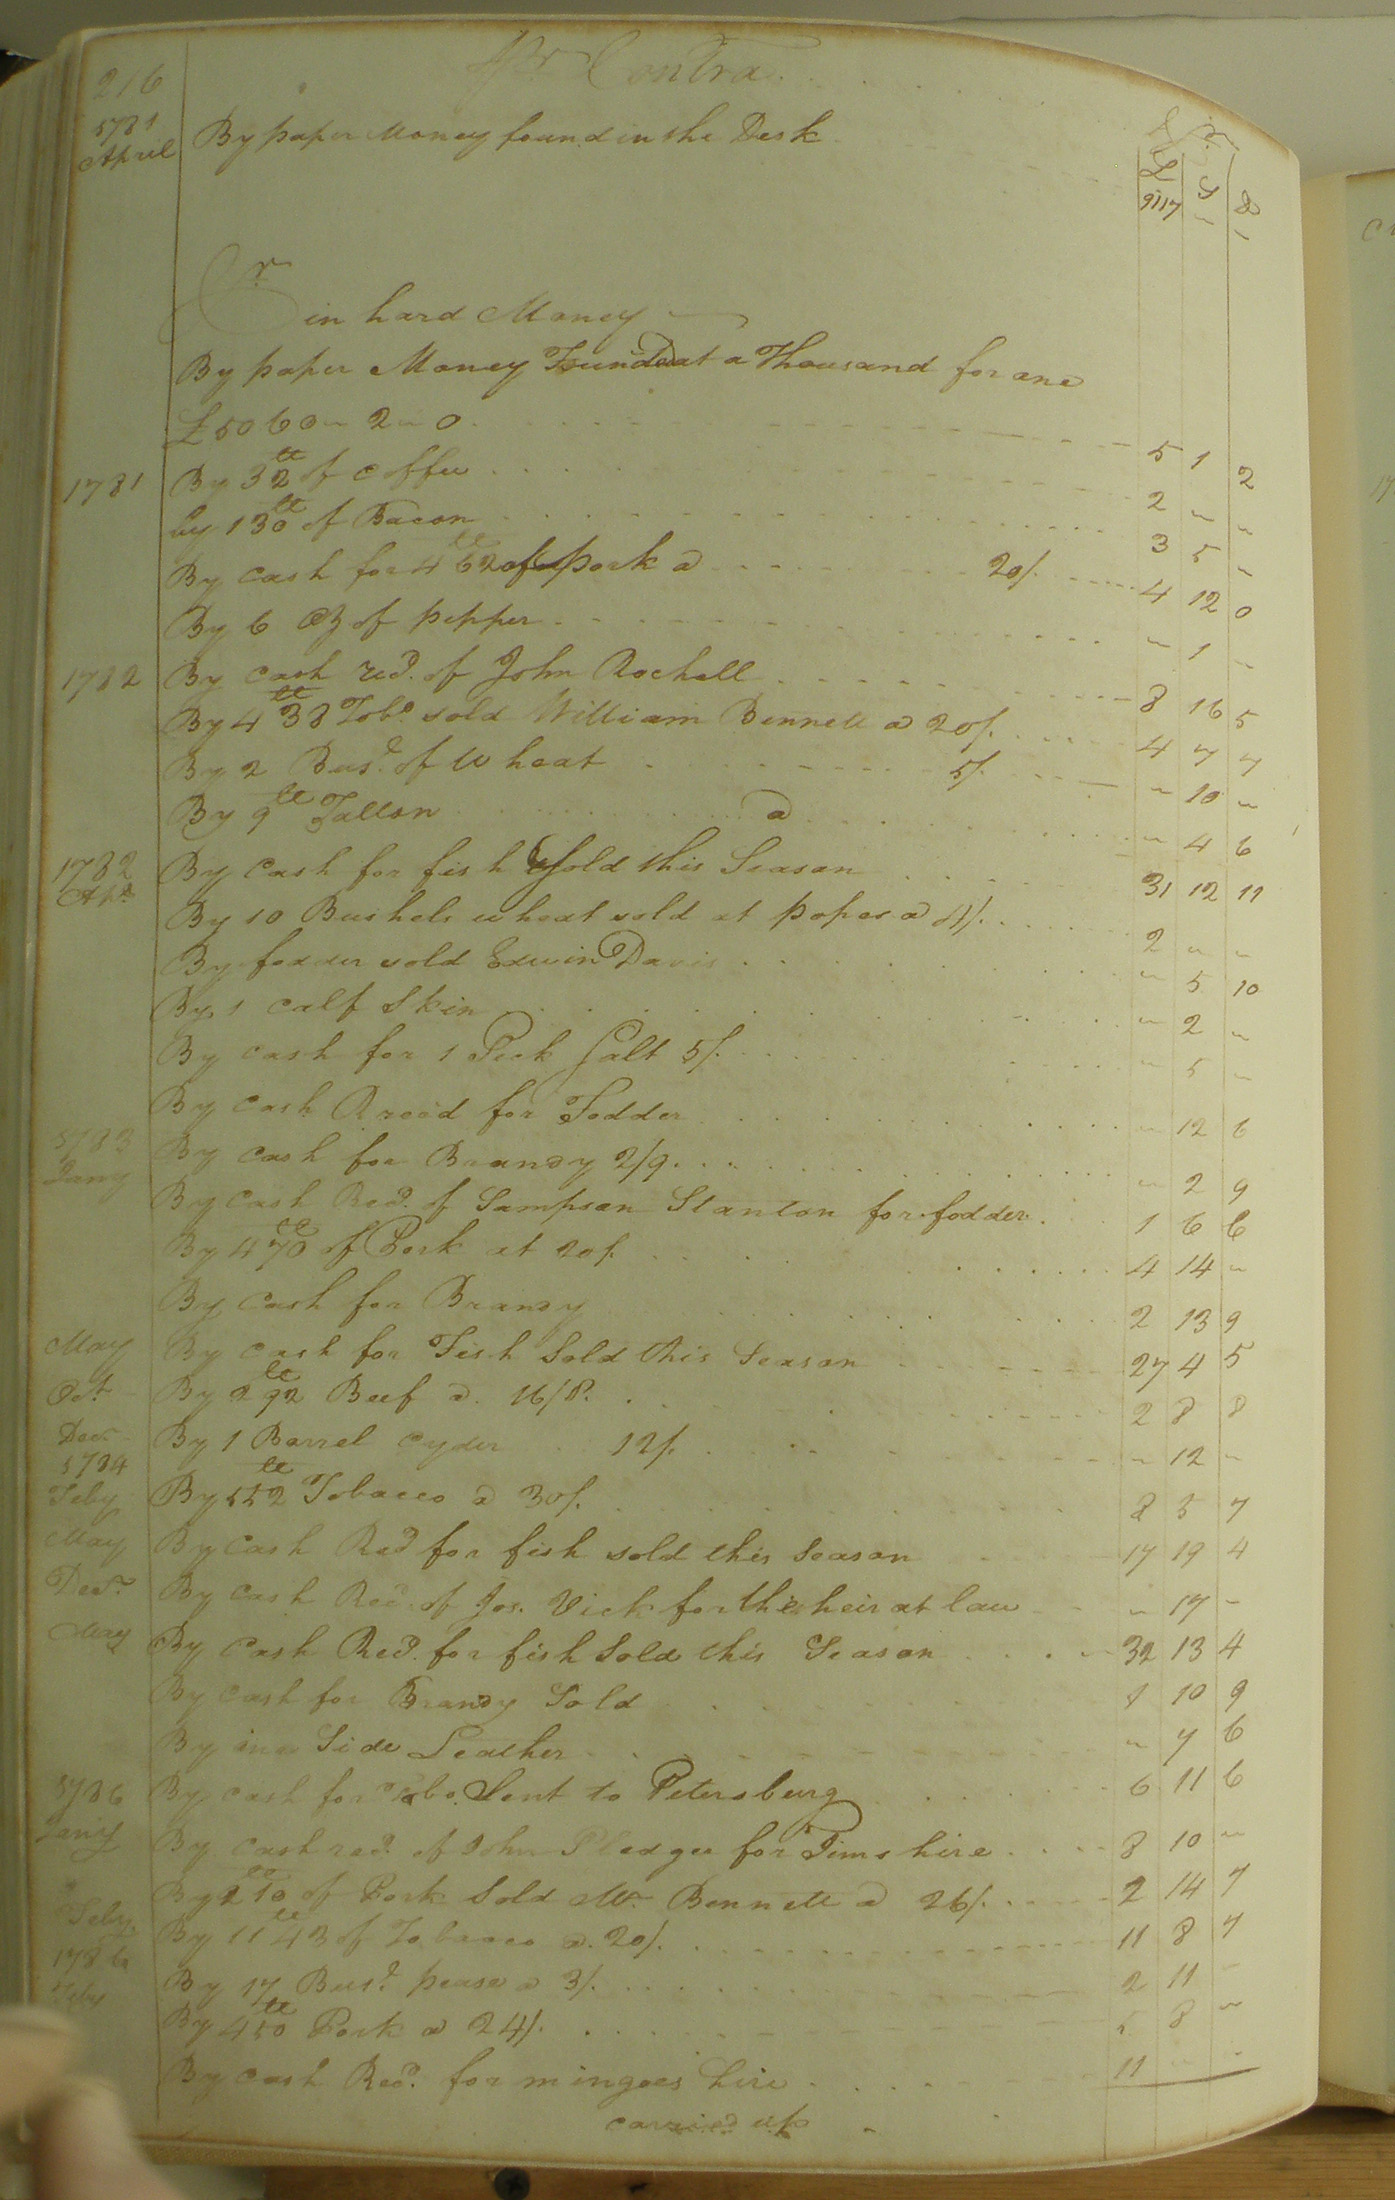 216
Pr Contra
1781
April By paper Money found in the Desk
£ S D
9117 " "
Cr
in hard Money
By paper Money Found at a Thousand for one
£5060 " 2 " 0 5 1 2
1781 By 32 lb of Coffee 2 " "
by 130 lb of Bacon 3 5 "
By cash for 462 lb of pork a 20/. 4 12 0
By 6 oz of pepper " 1 "
1782 By cash recd. of John Rochell 8 16 5
By 438 lb Tobo. sold William Bennett a 20/. 4 7 7
By 2 Busl. of Wheat 5/. " 10 "
By 9 lb Tallon a " 4 6
1782
Apl. By Cash for fish Sold this Season 31 12 11
By 10 Bushels wheat sold at popes a 4/. 2 " "
By fodder sold Edwin Davis " 5 10
By 1 calf Skin " 2 "
By cash for 1 Peck Salt 5/. " 5 "
By cash Recd for Fodder " 12 6
1783
Jany By cash for Brandy 2/9. " 2 9
By cash Recd. of Sampson Stanton for fodder. 1 6 6
By 470 lb of Pork at 20/. 4 14 "
By Cash for Brandy 2 13 9
May By cash for Fish Sold this Season 27 4 5
Oct By 292 lb Beef a. 16/8. 2 8 8
Decr By 1 Barrel Cyder 12/. " 12 "
1784
Feby By 552 lb Tobacco a 30/. 8 5 7
May By Cash Recd for fish sold this Season 17 19 4
Decr. By Cash Recd. of Jos. Vick for the heir at law " 17 "
May By Cash Recd. for fish Sold this Season 32 13 4
By Cash for Brandy Sold 1 10 9
By Side Leather " 7 6
1786
Jany By cash for Tobo. Sent to Petersburg 6 11 6
By cash recd. of John Pledger for Tims hire 8 10 "
By 210 lb of Pork Sold Mr. Bennett a 26/. 2 14 7
Feby. By 1143 lb of Tobacco a. 20/. 11 8 7
1786
Feby By 17 Busl. pease a 3/. 2 11 "
By 450 lb Pork a 24/. 5 8 "
By cash Recd. for mingoes hire 11 " "
carried up